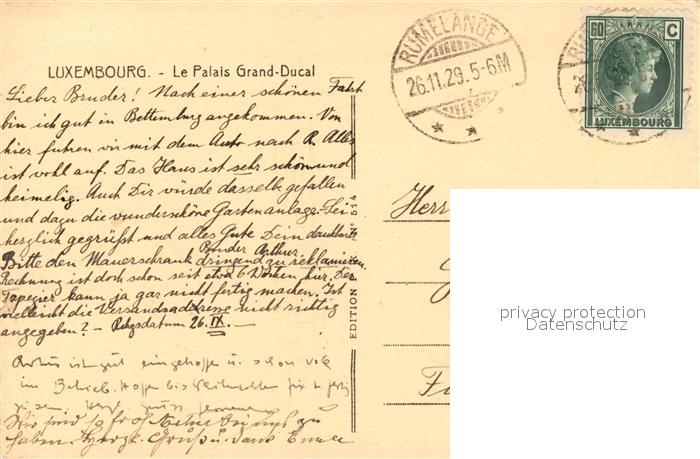 LUXEMBOURG. - Le Palais Grand-Ducal
Lieber Bruder! Nach einer schönen Fahrt
bin ich gut in Bettemburg angekommen. Von
hier fuhren wir mit dem Auto nach R. Alles
ist wohl auf. Das Haus ist sehr schön und
heimelig. Auch Dir würde dasselbe gefallen
und dazu die wunderschöne Gartenanlage. Sei
herzlich gegrüßt und alles Gute Dein dankbarer
Bruder Arthur.
Bitte den Mauerschrank dringend zu reklamieren.
Rechnung ist doch schon seit etwa 6 Wochen hier. Der
Tapezier kann ja gar nicht fertig machen. Ist
vielleicht die Versandsadresse nicht richtig
angegeben? - Rechgsdatum 26. IX. -
ist gut u. schon
im Betrieb. Hoffe bis Weihnachten
Wir sind so froh
haben. Gruß u.
EDITION N° 514
RUMELANGE
26.11.29.5-6M
60 C
LUXEMBOURG
RU
26.
Herr
privacy protection
Datenschutz